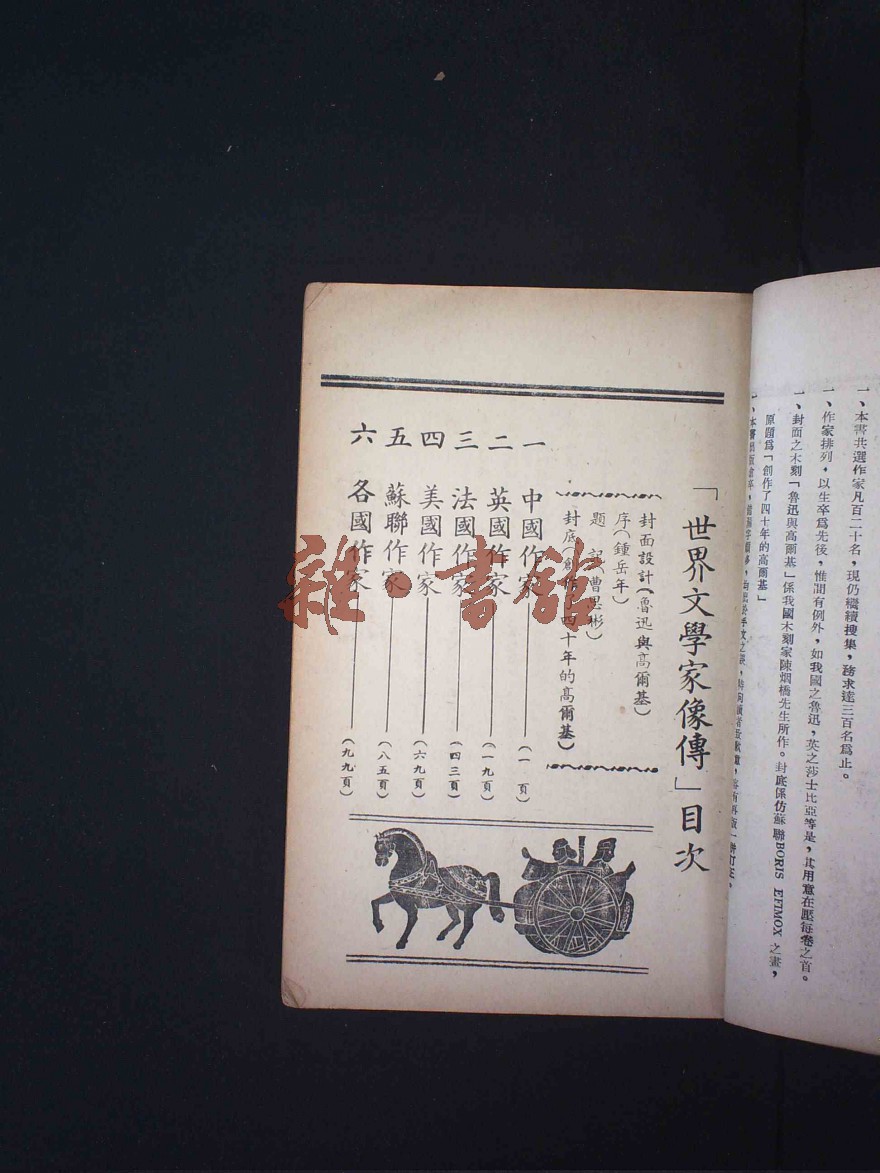 一、本書共選作家凡百二十名，現仍繼續搜集，務求達三百名爲止。
一、作家排列，以生卒爲先後，惟間有例外，如我國之魯迅，英之莎士比亞等是，其用意在壓每卷之首。
一、封面之木刻「魯迅與高爾基」係我國木刻家陳烟橋先生所作。封底係仿蘇聯BORIS EFIMOX之畫，
原題爲「創作了四十年的高爾基」
一、本書出版倉卒，
「世界文學家像傳」目次
封面設計（魯迅與高爾基）
序（鍾岳年）
題記（曹思彬）
封底（創作了四十年的高爾基）
一 中國作家（一頁）
二 英國作家（一九頁）
三 法國作家（四三頁）
四 美國作家（六九頁）
五 蘇聯作家（八五頁）
六 各國作家（九九頁）
雜·書館